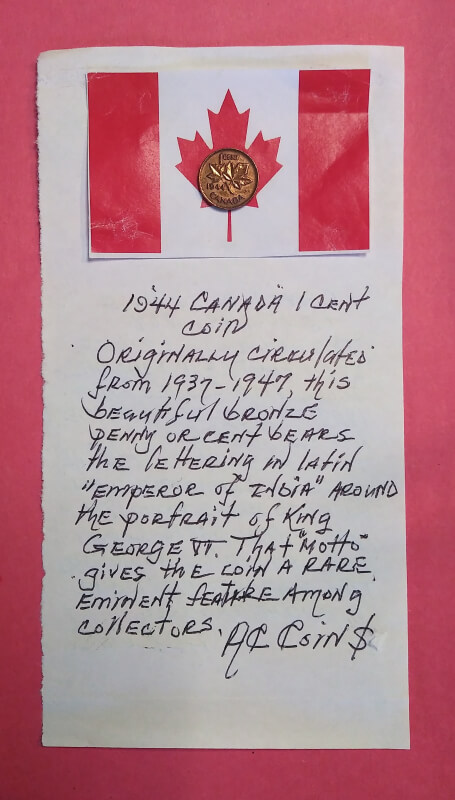 1 CENT
1944
CANADA
1944 CANADA 1 CENT
COIN
ORIGINALLY CIRCULATED
from 1937-1947, this
beautiful bronze
penny or cent bears
the lettering in latin
"EMPEROR of INDIA" AROUND
the portrait of KING
GEORGE VI. That "MOTTO"
gives the coin A RARE
Eminent featURE Among
collectors. AC COIN$